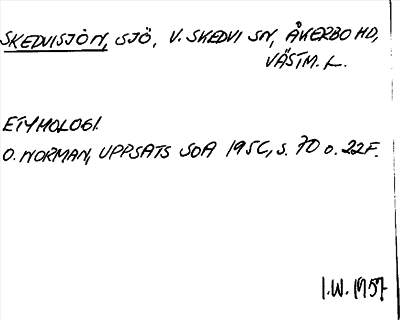 SKEDVISJÖN, SJÖ, V. SKEDVI SN, ÅKERBO HD,
VÄSTM. L.
ETYMOLOGI.
O. NORMAN, UPPSATS SOA 1956, S. 70 o. 22F.
I.W. 1957